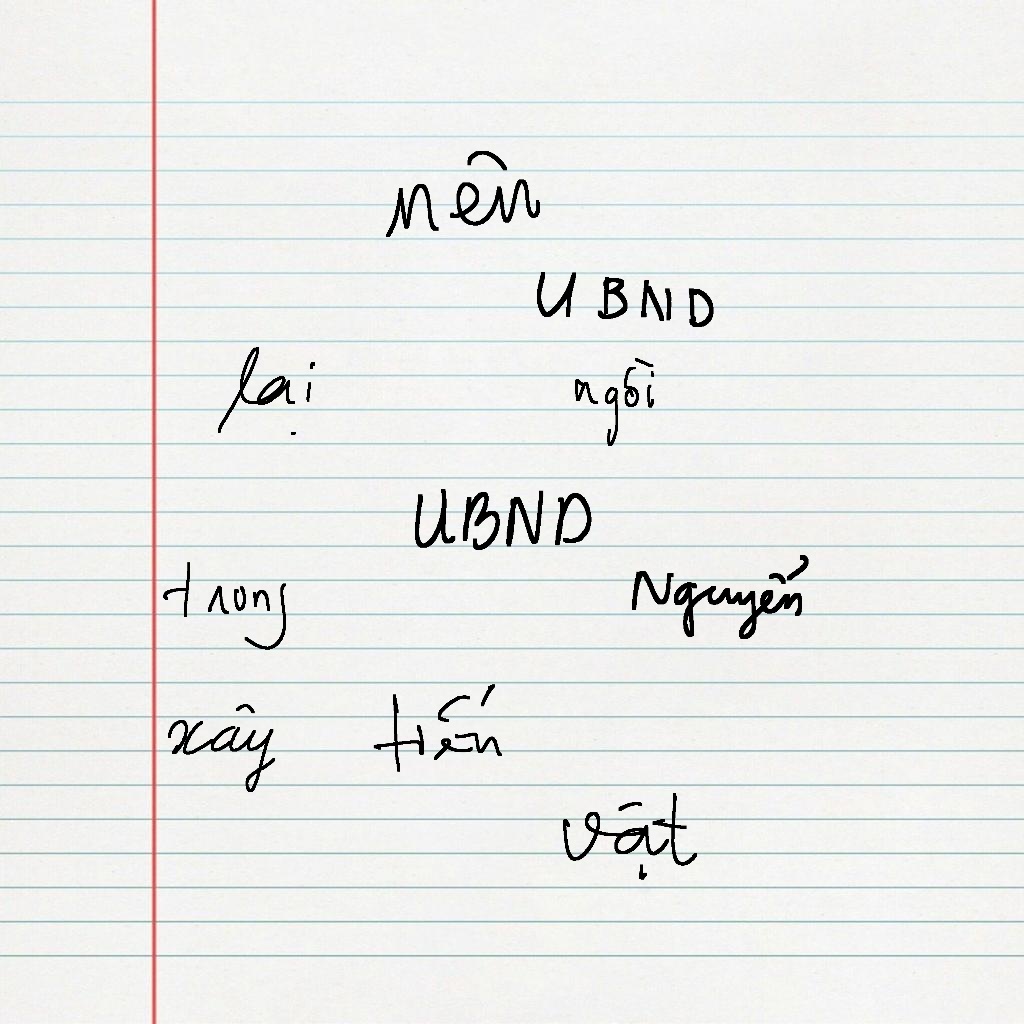 nên
UBND
lại ngồi
UBND
trong Nguyễn
xây tiến
vật